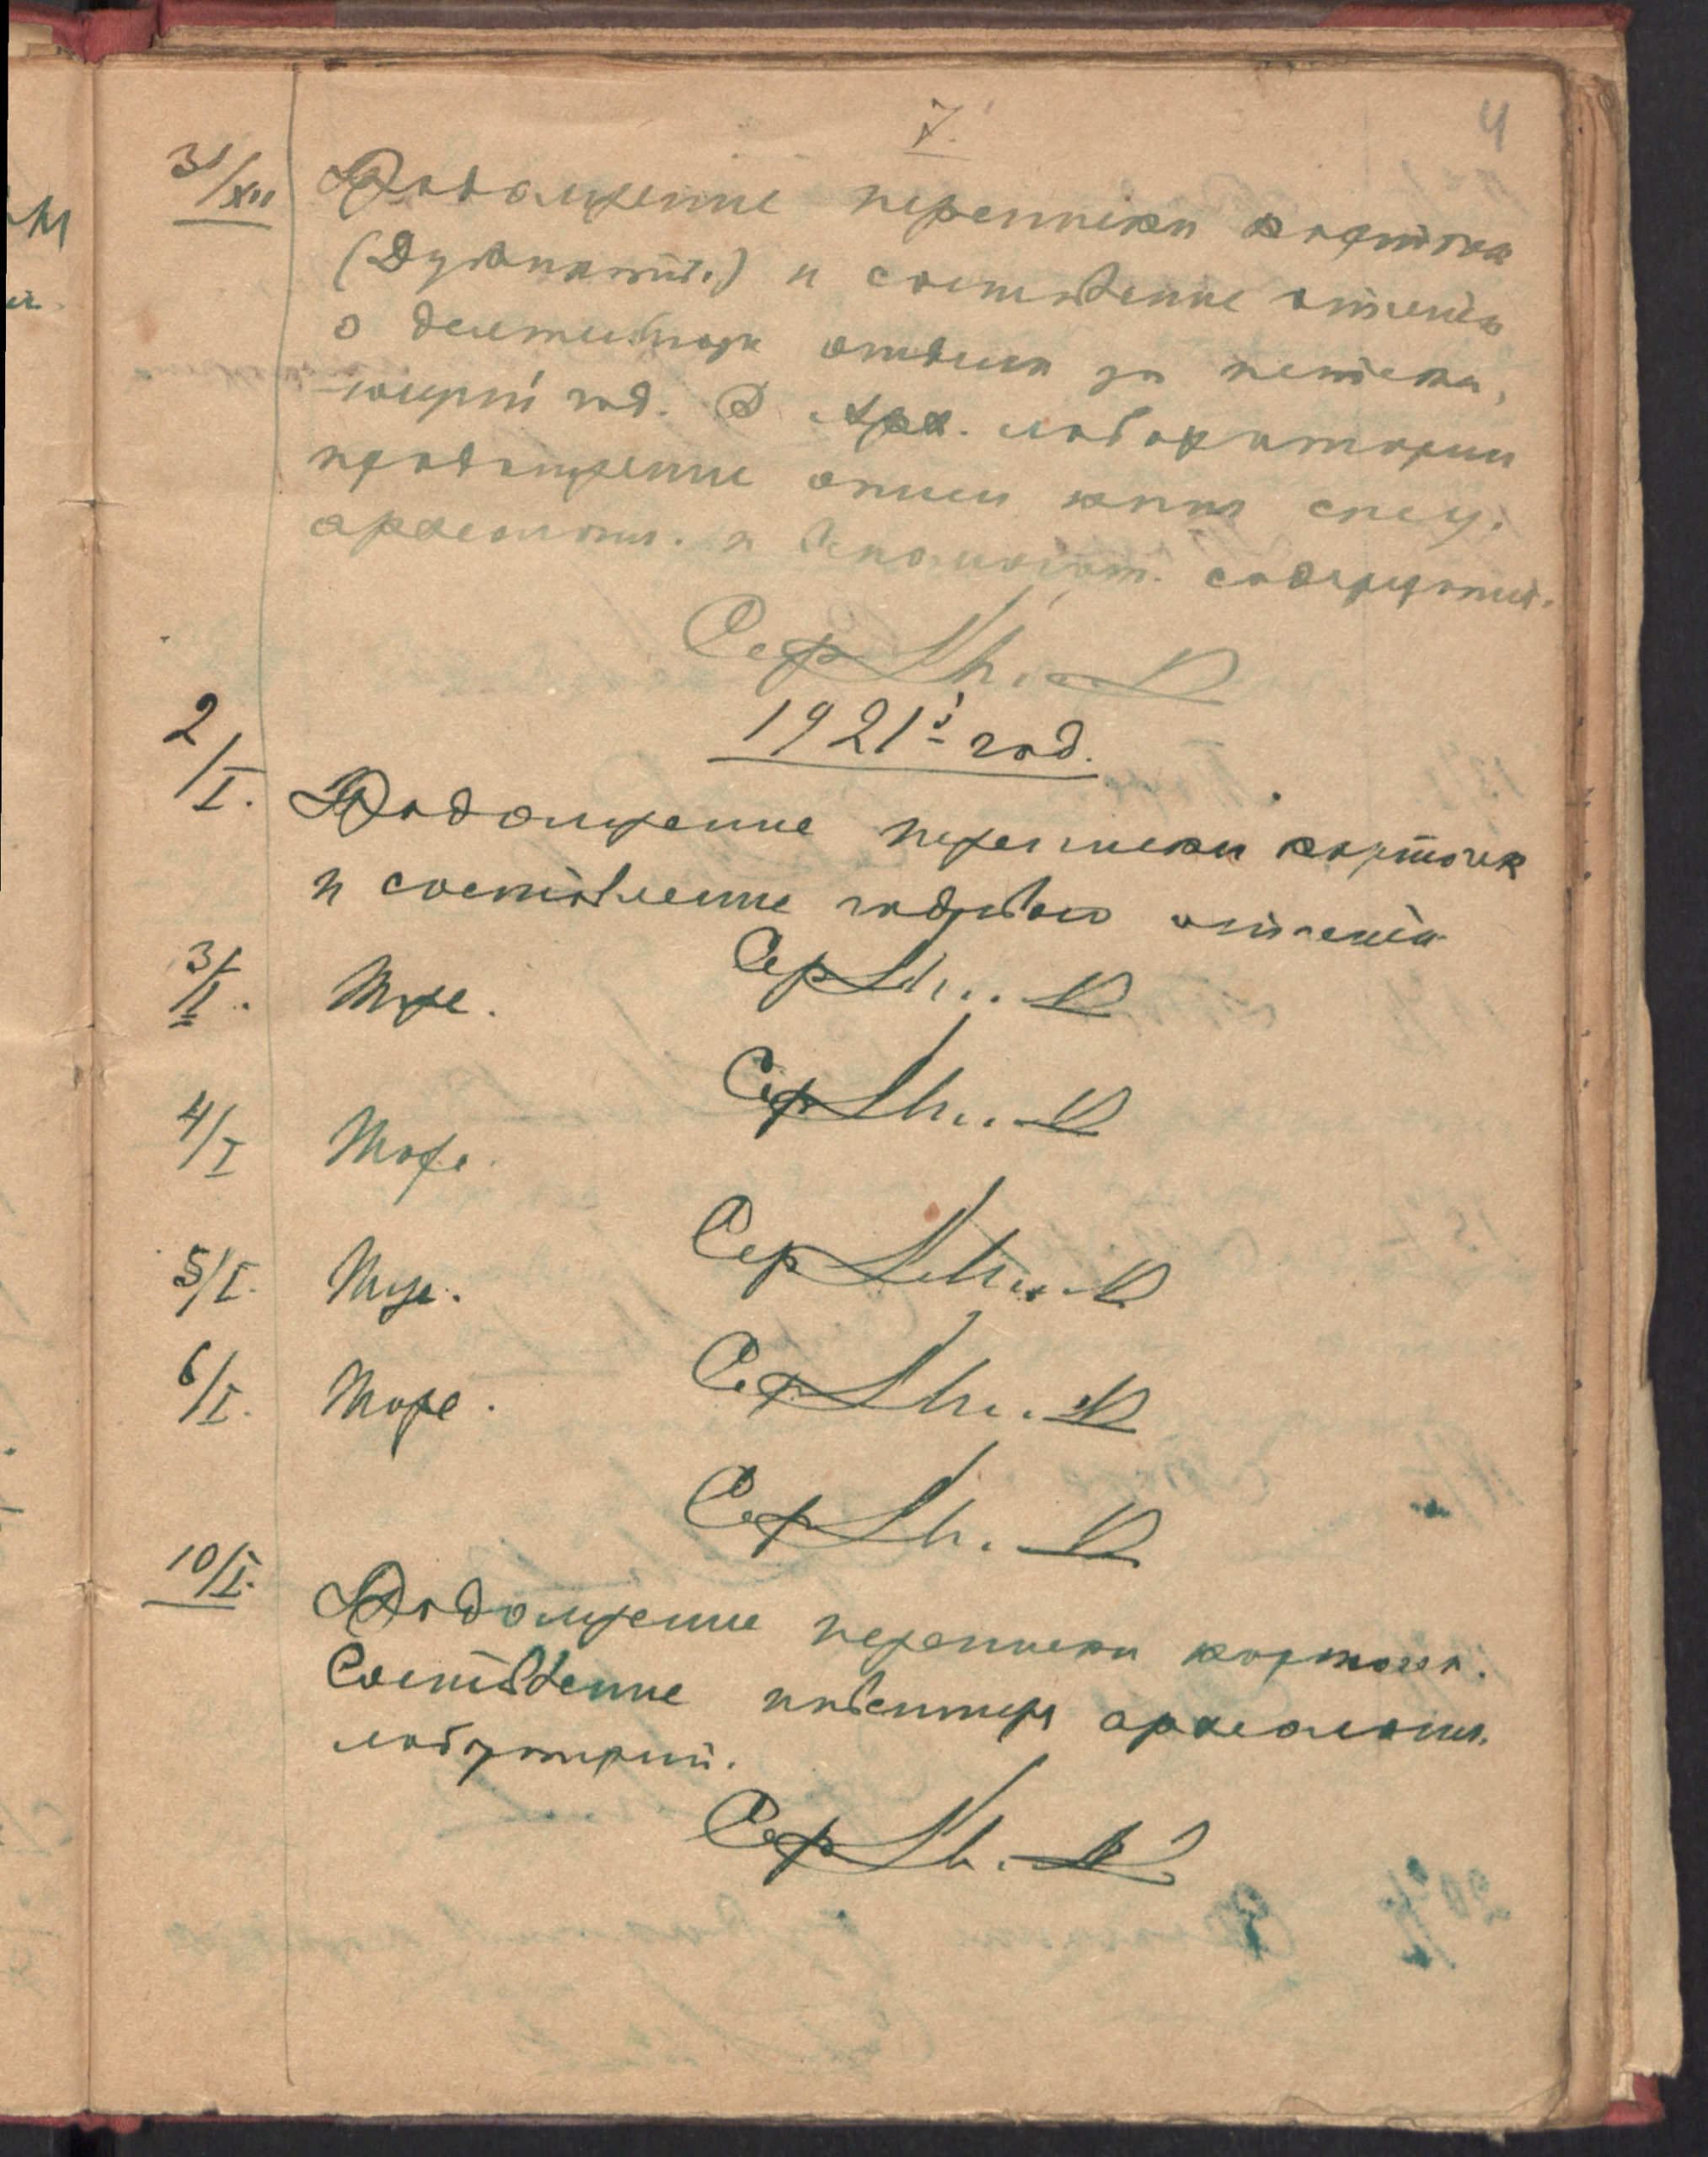 7.
4
31/XII Продолжение переписки карточек
(Дубликатов.) и составление отчета
о деятельности отдела за истека,
-ющий год. В Арх. лаборатории
продолжение описи книг спец.
археологич. и содержания.
Сер
1921й год.
2/I. Продолжение переписки карточек
и составление годового отчета
Сер
3/I. Тоже.
Сер
4/I Тоже
Сер
5/I. Тоже.
Сер
6/I. Тоже.
Сер
10/I. Продолжение переписки карточек.
Составление инвентаря археологич.
лаборатории.
Сер